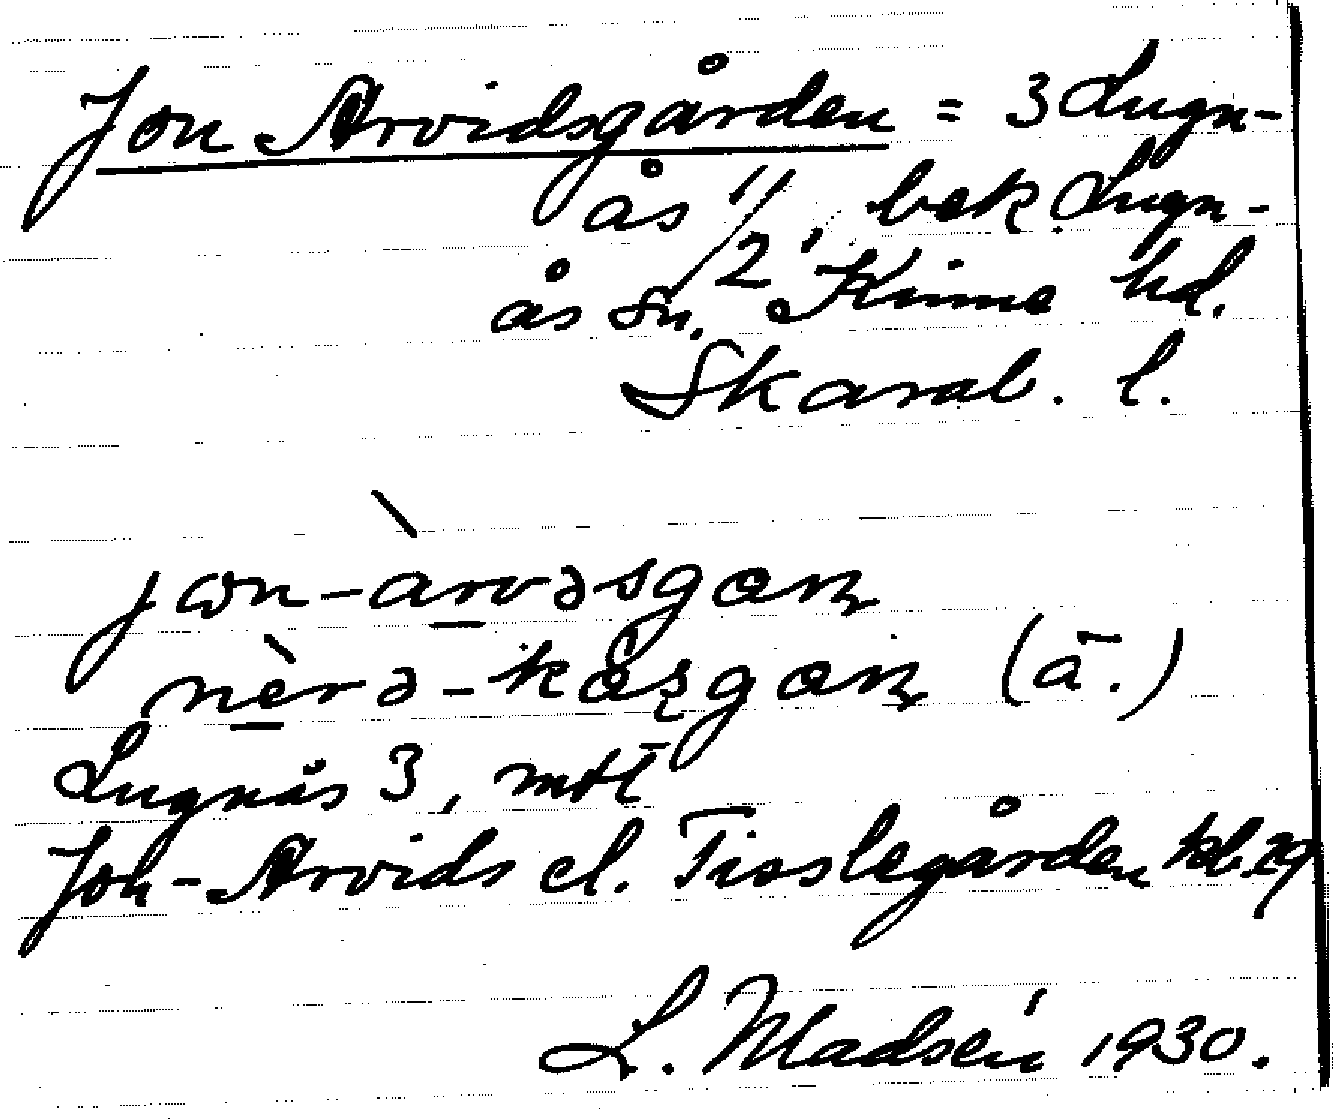 Jon Arvidsgården = 3 Lugn-
ås 1/2, bek. Lugn-
ås sn. Kinne hd.
Skarab. l.
jɷn-àrvəsgɑɳ
nèrə-
(ä.)
Lugnås 3, mtl
Jon-Arvids el. Tisslegården kb. 29
L. Madsén 1930.